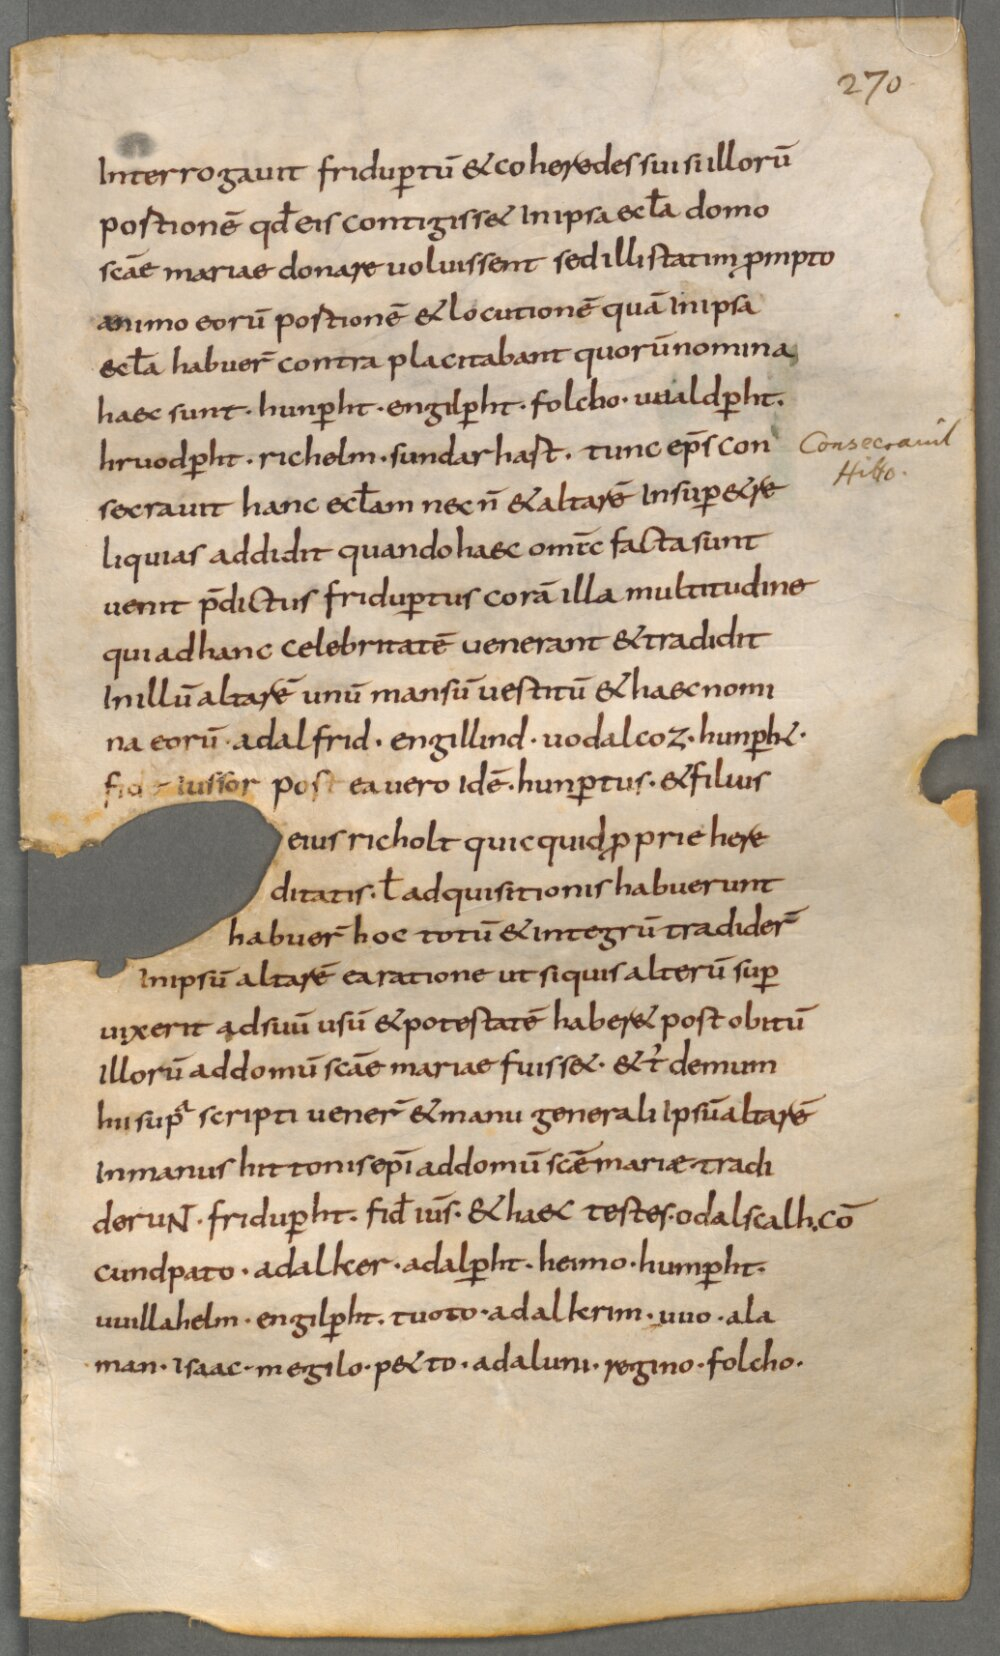 270
Interrogauit fridup̄tū & coheredes sui si illorū
postionē qđ eis contigiss& In ipsa eccła domo
scāe mariae donare uoluissent sed illi statim p̄mpto
animo eorū postionē & locutionē quā In ipsa
eccła habuer̄ contra placitabant quorū nomina
haec sunt · hunp̄ht · engilp̄ht · folcho · uualdp̄ht.
hruodp̄ht · richelm · sundarhast · tunc ep̄s con
Consecrauit
Hitto.
secrauit hanc ecłam nec n̄ & altarē Insup̄ & re
liquias addidit quando haec om̄c facta sunt
uenit p̄dictus fridup̄tus corā illa multitudine
qui ad hanc celebritatē uenerant & tradidit
In illū altarē unū mansū uestitū & haec nomi
na eorū · adalfrid · engillind · uodalcoz · hunp̄h& ·
fid iussor post ea uero Idē · hunp̄tus · & filius
eius richolt quicquid p̄prie here
ditatis · ł adquisitionis habuerunt
habuer̄ hoc totū & integrū tradider̄
In ipsū altarē ea ratione ut si quis alterū sup̄
uixerit ad suū usū & potestatē haber& post obitū
illorū ad domū scāe mariae fuiss& · & t̄ demum
hii sup̄a scripti uener̄ & manu generali Ipsū altarē
In manus hittonis ep̄i ad domū scē mariæ tradi
deruN̄ · fridup̄ht · fiđ iūs · & haec testes · odalscalh · cō
cundpato · adalker · adalp̄ht · heimo · hump̄ht ·
uuillahelm · engilp̄ht · tuoto · adalkrim · uuo · ala
man · Isaac · megilo · p&to · adaluni · regino · folcho ·